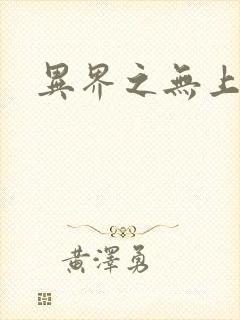 異界之無上
黃澤勇